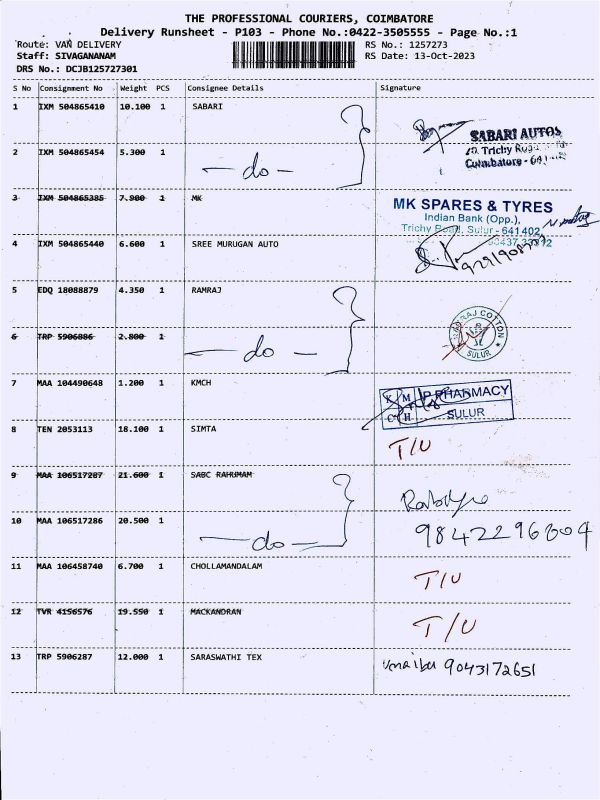 THE PROFESSIONAL COURIERS, COIMBATORE
Delivery Runsheet - P103 - Phone No.:0422-3505555 - Page No.:1
Route: VAN DELIVERY RS No.: 1257273
Staff: SIVAGANANAM RS Date: 13-Oct-2023
DRS No.: DCJB125727301
S No Consignment No Weight PCS Consignee Details Signature
1 IXM 504865410 10.100 1 SABARI
SABARI AUTOS
Coimbatore - 641
2 IXM 504865454 5.300 1
- do -
3 IXM 504865385 7.900 1 MK
MK SPARES & TYRES
Indian Bank (Opp.),
Trichy Road, Sulur - 641402
4 IXM 504865440 6.600 1 SREE MURUGAN AUTO
5 EDQ 18088879 4.350 1 RAMRAJ
RAMRAJ COTTON
SULUR
6 TRP 5906086 2.800 1
- do -
7 MAA 104490648 1.200 1 KMCH
K M C H
PHARMACY
SULUR
8 TEN 2053113 18.100 1 SIMTA
T/U
9 MAA 106517287 21.600 1 SABC RAHUMAN
10 MAA 106517286 20.500 1
- do -
9842296004
11 MAA 106458740 6.700 1 CHOLLAMANDALAM
T/U
12 TVR 4156576 19.550 1 MACKANDRAN
T/U
13 TRP 5906287 12.000 1 SARASWATHI TEX
9043172651